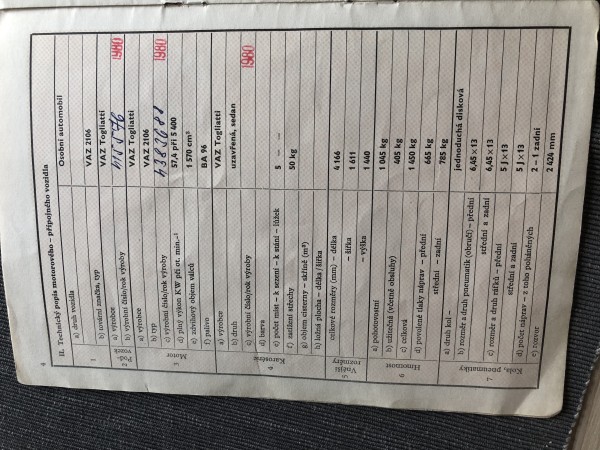 4
II. Technický popis motorového – přípojného vozidla
1 a) druh vozidla Osobní automobil
b) tovární značka, typ VAZ 2106
2 Podvozek a) výrobce VAZ Togliatti
b) výrobní číslo/rok výroby 1980
3 Motor a) výrobce VAZ Togliatti
b) typ VAZ 2106
c) výrobní číslo/rok výroby 1980
d) plný výkon KW při ot. min.–1 57,4 při 5 400
e) zdvihový objem válců 1 570 cm³
f) palivo BA 96
4 Karosérie a) výrobce VAZ Togliatti
b) druh uzavřená, sedan
c) výrobní číslo/rok výroby 1980
d) barva
e) počet míst – k sezení – k stání – lůžek 5 – –
f) zatížení střechy 50 kg
g) objem cisterny – skříně (m³)
h) ložná plocha – délka/šířka
5 Vnější rozměry celkové rozměry (mm) – délka 4 166
– šířka 1 611
– výška 1 440
6 Hmotnost a) pohotovostní 1 045 kg
b) užitečná (včetně obsluhy) 405 kg
c) celková 1 450 kg
d) povolené tlaky náprav – přední 665 kg
– zadní 785 kg
7 Kola, pneumatiky a) druh kol – jednoduchá disková
b) rozměr a druh pneumatik (obručí) – přední 6,45×13
střední a zadní 6,45×13
c) rozměr a druh ráfků – přední 5 J×13
střední a zadní 5 J×13
d) počet náprav – z toho poháněných 2 – 1 zadní
e) rozvor 2 424 mm